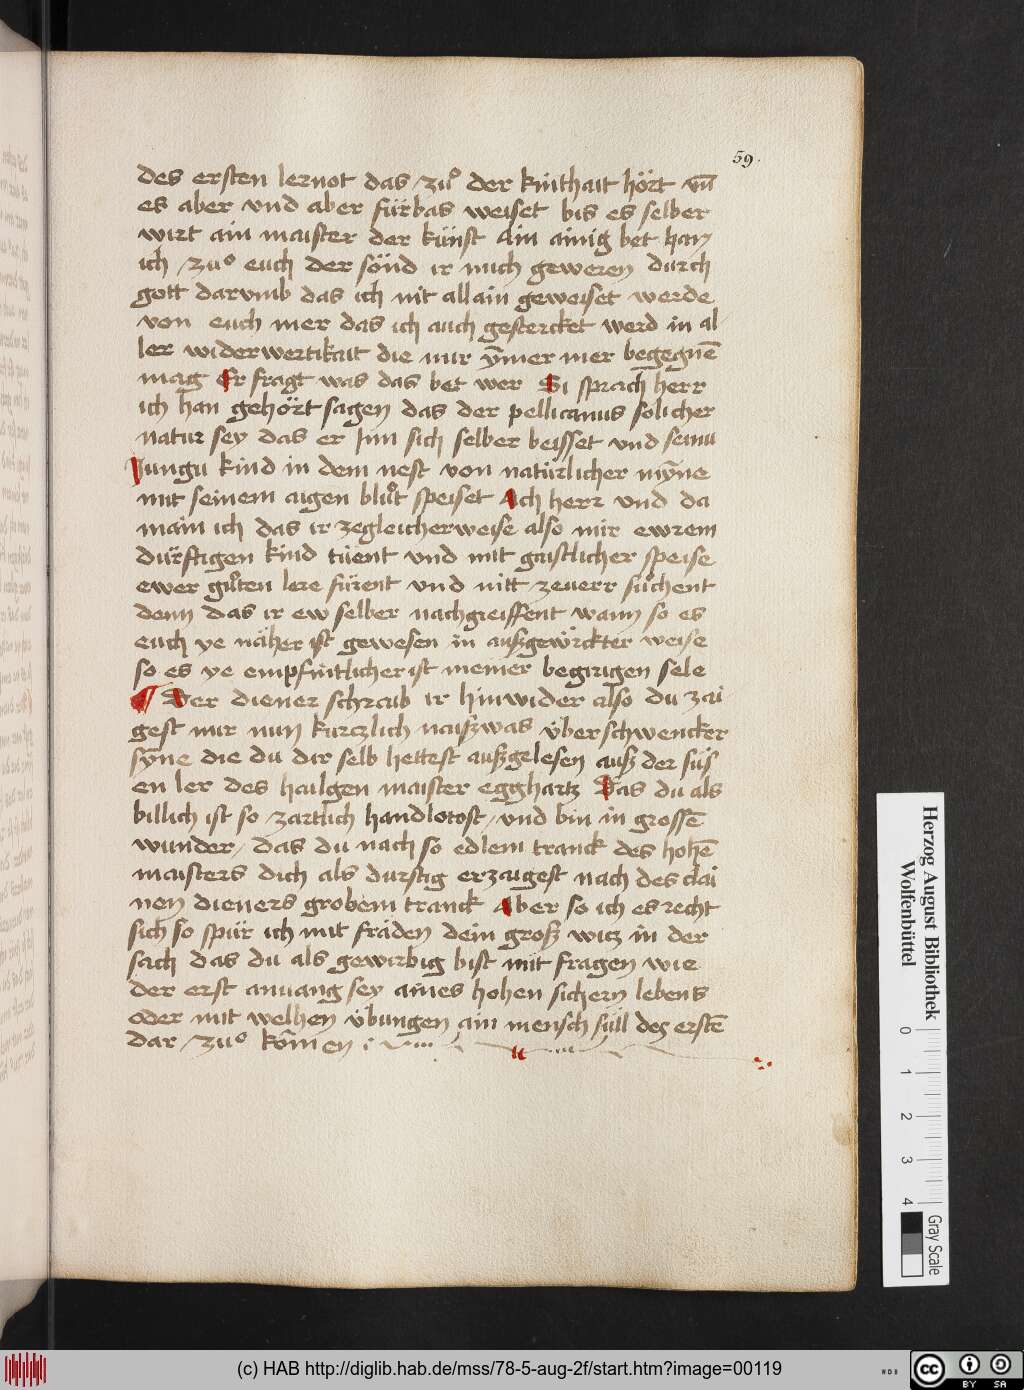 59.
des ersten lernot das zuͦ der kinthait hört vn̄
es aber vnd aber fürbas weiset bis es selber
wirt ain maister der künst Ain ainig bet han
ich zuͦ euch der sönd ir mich geweren durch
gott darvmb das ich nit allain geweiset werde
von euch mer das ich auch gestercket werd in al
ler widerwertikait die mir ÿmer mer begegnē
mag Er fragt was das bet wer Si sprach herr
ich han gehört sagen das der pellicanus solicher
natur sey das er Inn sich selber beisset vnd seinu
Jungu kind in dem nest von natürlicher mÿne
mit seinem aigen bluͦt speiset Ach herr vnd da
main ich das ir zegleicherweise also mir ewrem
dürftigen kind tüent vnd mit gaistlicher speise
ewer guͦten lere fürent vnd nitt zeuerr suͦchent
denn das ir ew selber nachgreiffent wann so es
euch ye näher ist gewesen in außgewürckter weise
so es ye empfintlicher ist meiner begirigen sele
Der diener schraib ir hinwider also du zai
gest mir nun kurczlich naißwas überschwencker
sÿne die du dir selb hettest außgelesen auß der süs
en ler des hailgen maister egghartz Das du als
billich ist so zartlich handlotost vnd bin in grossē
wunder das du nach so edlem tranck des hohē
maisters dich als durstig erzaigest nach des clai
nen dieners grobem tranck Aber so ich es recht
sich so spür ich mit fräden dein groß witz in der
sach das du als gewirbig bist mit fragen wie
der erst anuang sey aines hohen sichern lebens
oder mit welhen übungen ain mensch süll des erstē
dar zuͦ kōmen
Herzog August Bibliothek
Wolfenbüttel
0 1 2 3 4
Gray Scale
(c) HAB http://diglib.hab.de/mss/78-5-aug-2f/start.htm?image=00119
WDB
cc BY SA